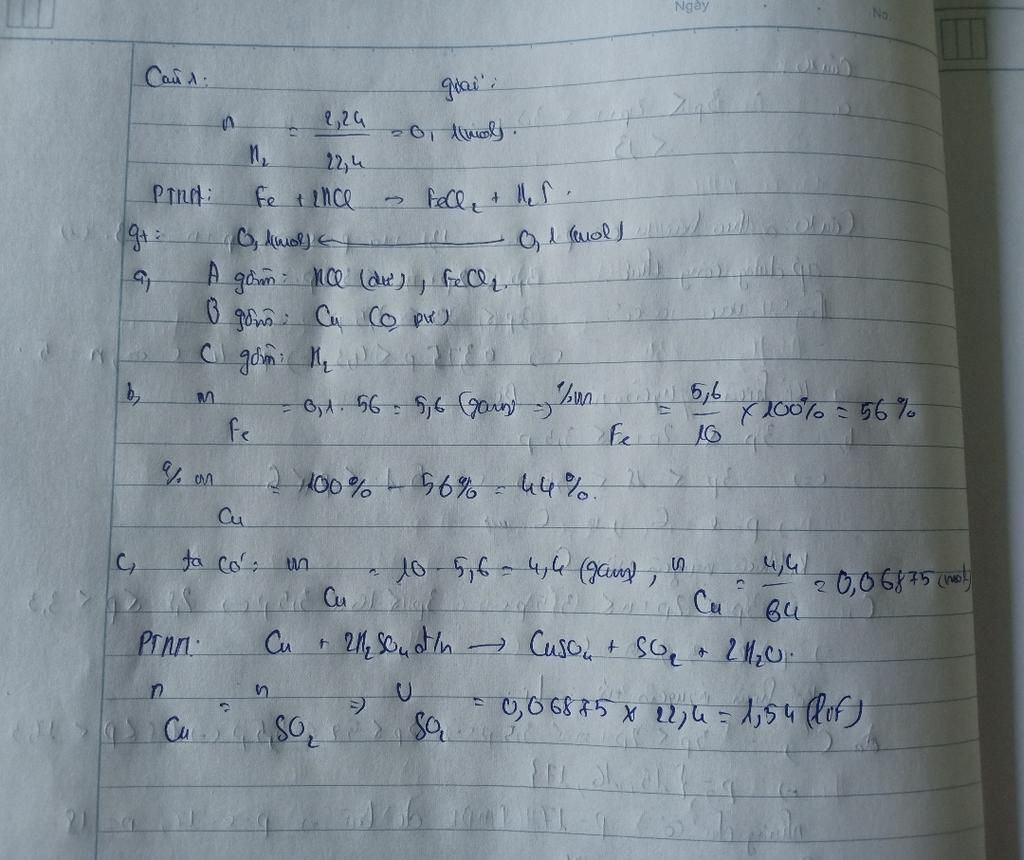 Ngày
No.
Câu 1: giải:
n H₂ = 2,24 / 22,4 = 0,1 (mol).
PTHH: Fe + 2HCl → FeCl₂ + H₂↑.
gt: 0,1(mol) ← 0,1 (mol)
a, A gồm: HCl (dư), FeCl₂.
B gồm: Cu (O pư)
C gồm: H₂
b, m Fe = 0,1 . 56 = 5,6 (gam) => %m Fe = 5,6 / 10 × 100% = 56%
%m Cu = 100% - 56% = 44%.
c, ta có: m Cu = 10 - 5,6 = 4,4 (gam), n Cu = 4,4 / 64 = 0,06875 (mol)
PTHH: Cu + 2H₂SO₄ đ/n → CuSO₄ + SO₂ + 2H₂O.
n Cu = n SO₂ => V SO₂ = 0,06875 × 22,4 = 1,54 (lít)